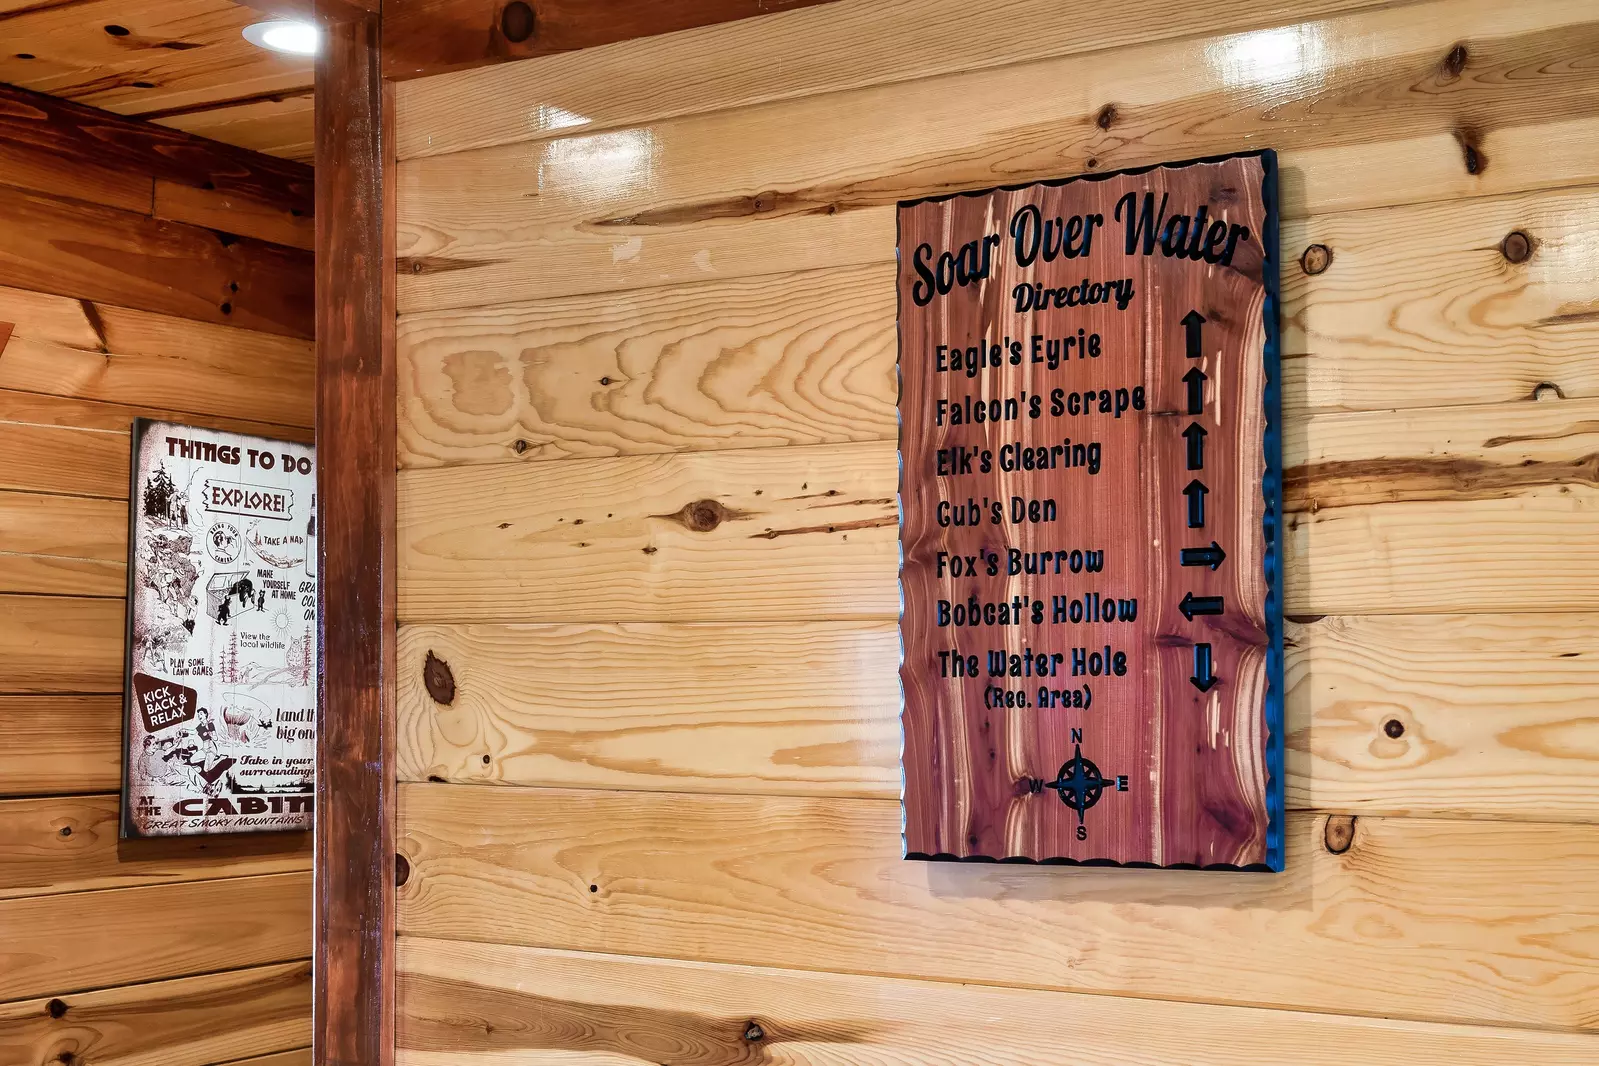 THINGS TO DO
EXPLORE!
BRING YOUR
CAMERA
TAKE A NAP
MAKE
YOURSELF
AT HOME
View the
local wildlife
PLAY SOME
LAWN GAMES
KICK
BACK &
RELAX
Land th
big on
Take in your
surroundings
AT
THE CABIN
GREAT SMOKY MOUNTAINS
Soar Over Water
Directory
Eagle's Eyrie
Falcon's Scrape
Elk's Clearing
Cub's Den
Fox's Burrow
Bobcat's Hollow
The Water Hole
(Rec. Area)
N
W E
S